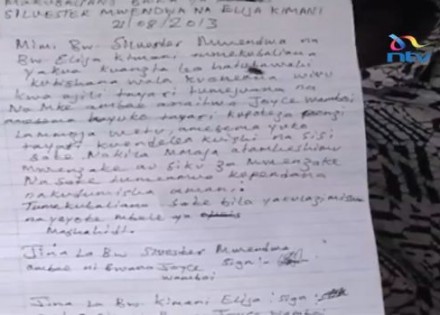 MAKUBALIANO BAINA YA
SILVESTER MWENDWA NA ELIJA KIMANI
21/08/2013
ntv
Mimi Bw. Silvester Mwendwa na
Bw. Elija Kimani tumekubaliana
yakwa kuanzia leo hatutawahi
kutishana wala kuoneana wivu
kwa ajili tayari tumejuana na
No Mke ambae anaitwa Joyce Wambui
amesema hayuko tayari kupoteza
Lammoja wetu, amesema yuko
tayari kuendelea kuishi na sisi
sote. Nakila Mmoja atamheshimu
Mwenzake au siku za Mwenzake
Na sote tumeamua kupendana
na kudumisha amani.
Tumekubaliana sote bila yakulazimishwa
nayeyote mbele ya
Mashahidi.
Jina La Bw Silvester Mwendwa
ambae ni bwana Joyce sign:-
Wambui
Jina La Bw. Kimani Elija: sign: